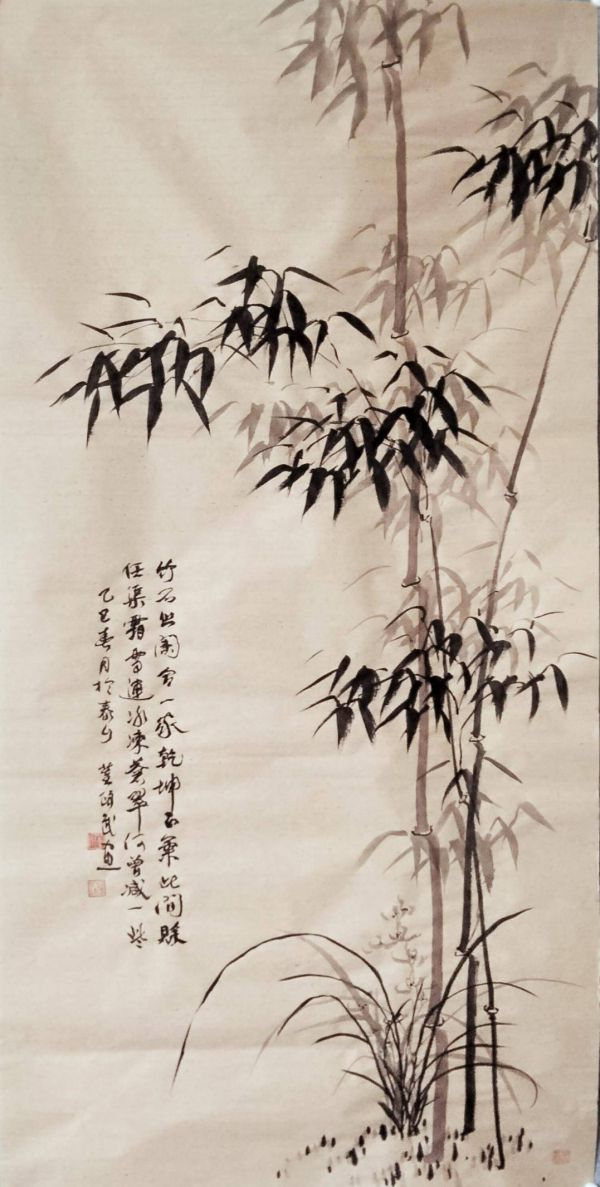 竹石幽蘭合一家乾坤正氣此間賒
任渠霜雪連冰凍蒼翠何曾減一些
乙巳春月於泰山 武畫